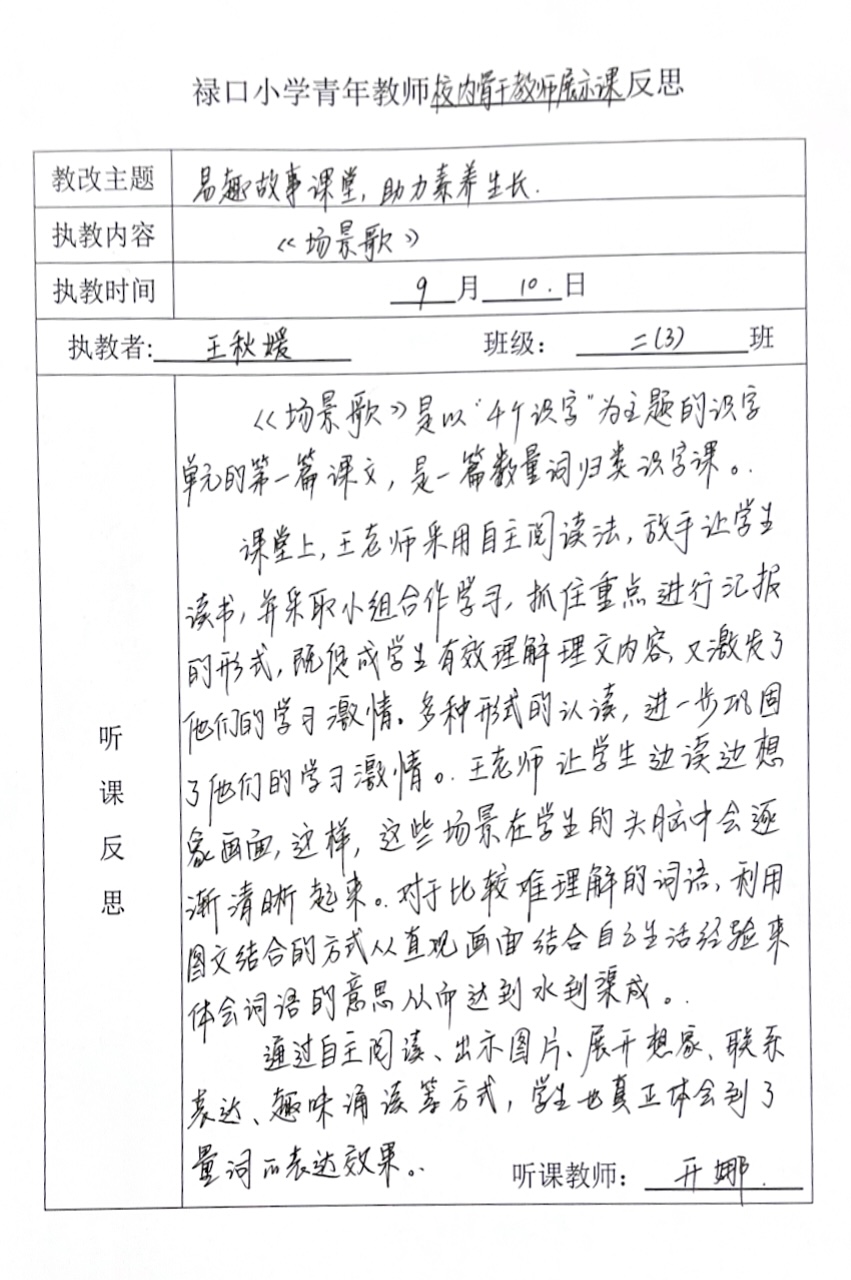 禄口小学青年教师校内骨干教师展示课反思
教改主题 易趣故事课堂，助力素养生长.
执教内容 《场景歌》
执教时间 9月10.日
执教者: 王秋媛 班级： 二(3) 班
听课反思
《场景歌》是以"个识字"为主题的识字
单元的第一篇课文，是一篇数量词归类识字课。
课堂上，王老师采用自主阅读法，放手让学生
读书，并采取小组合作学习，抓住重点进行汇报
的形式，既促成学生有效理解理文内容，又激发了
他们的学习激情。多种形式的认读，进一步巩固
了他们的学习激情。王老师让学生边读边想
象画面，这样，这些场景在学生的头脑中会逐
渐清晰起来。对于比较难理解的词语，利用
图文结合的方式从直观画面结合自己生活经验来
体会词语的意思从而达到水到渠成。
通过自主阅读、出示图片、展开想象、联系
表达、趣味诵读等方式，学生也真正体会到了
量词的表达效果。
听课教师： 亓娜.